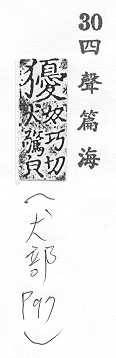 30 四聲篇海
獶奴巧切
犬驚皃
(犬部 P97)